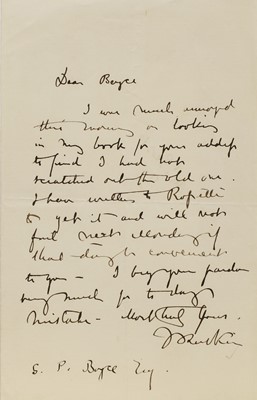 Dear Boyce
I was much annoyed
this morning on looking
in my book for your address
to find I had not
scratched out the old one.
I have written to Rossetti
to get it and will not
fail next Monday if
that day is convenient
to you - I beg your pardon
very much for to days
mistake - Most truly Yours.
J Ruskin
G. P. Boyce Esq.